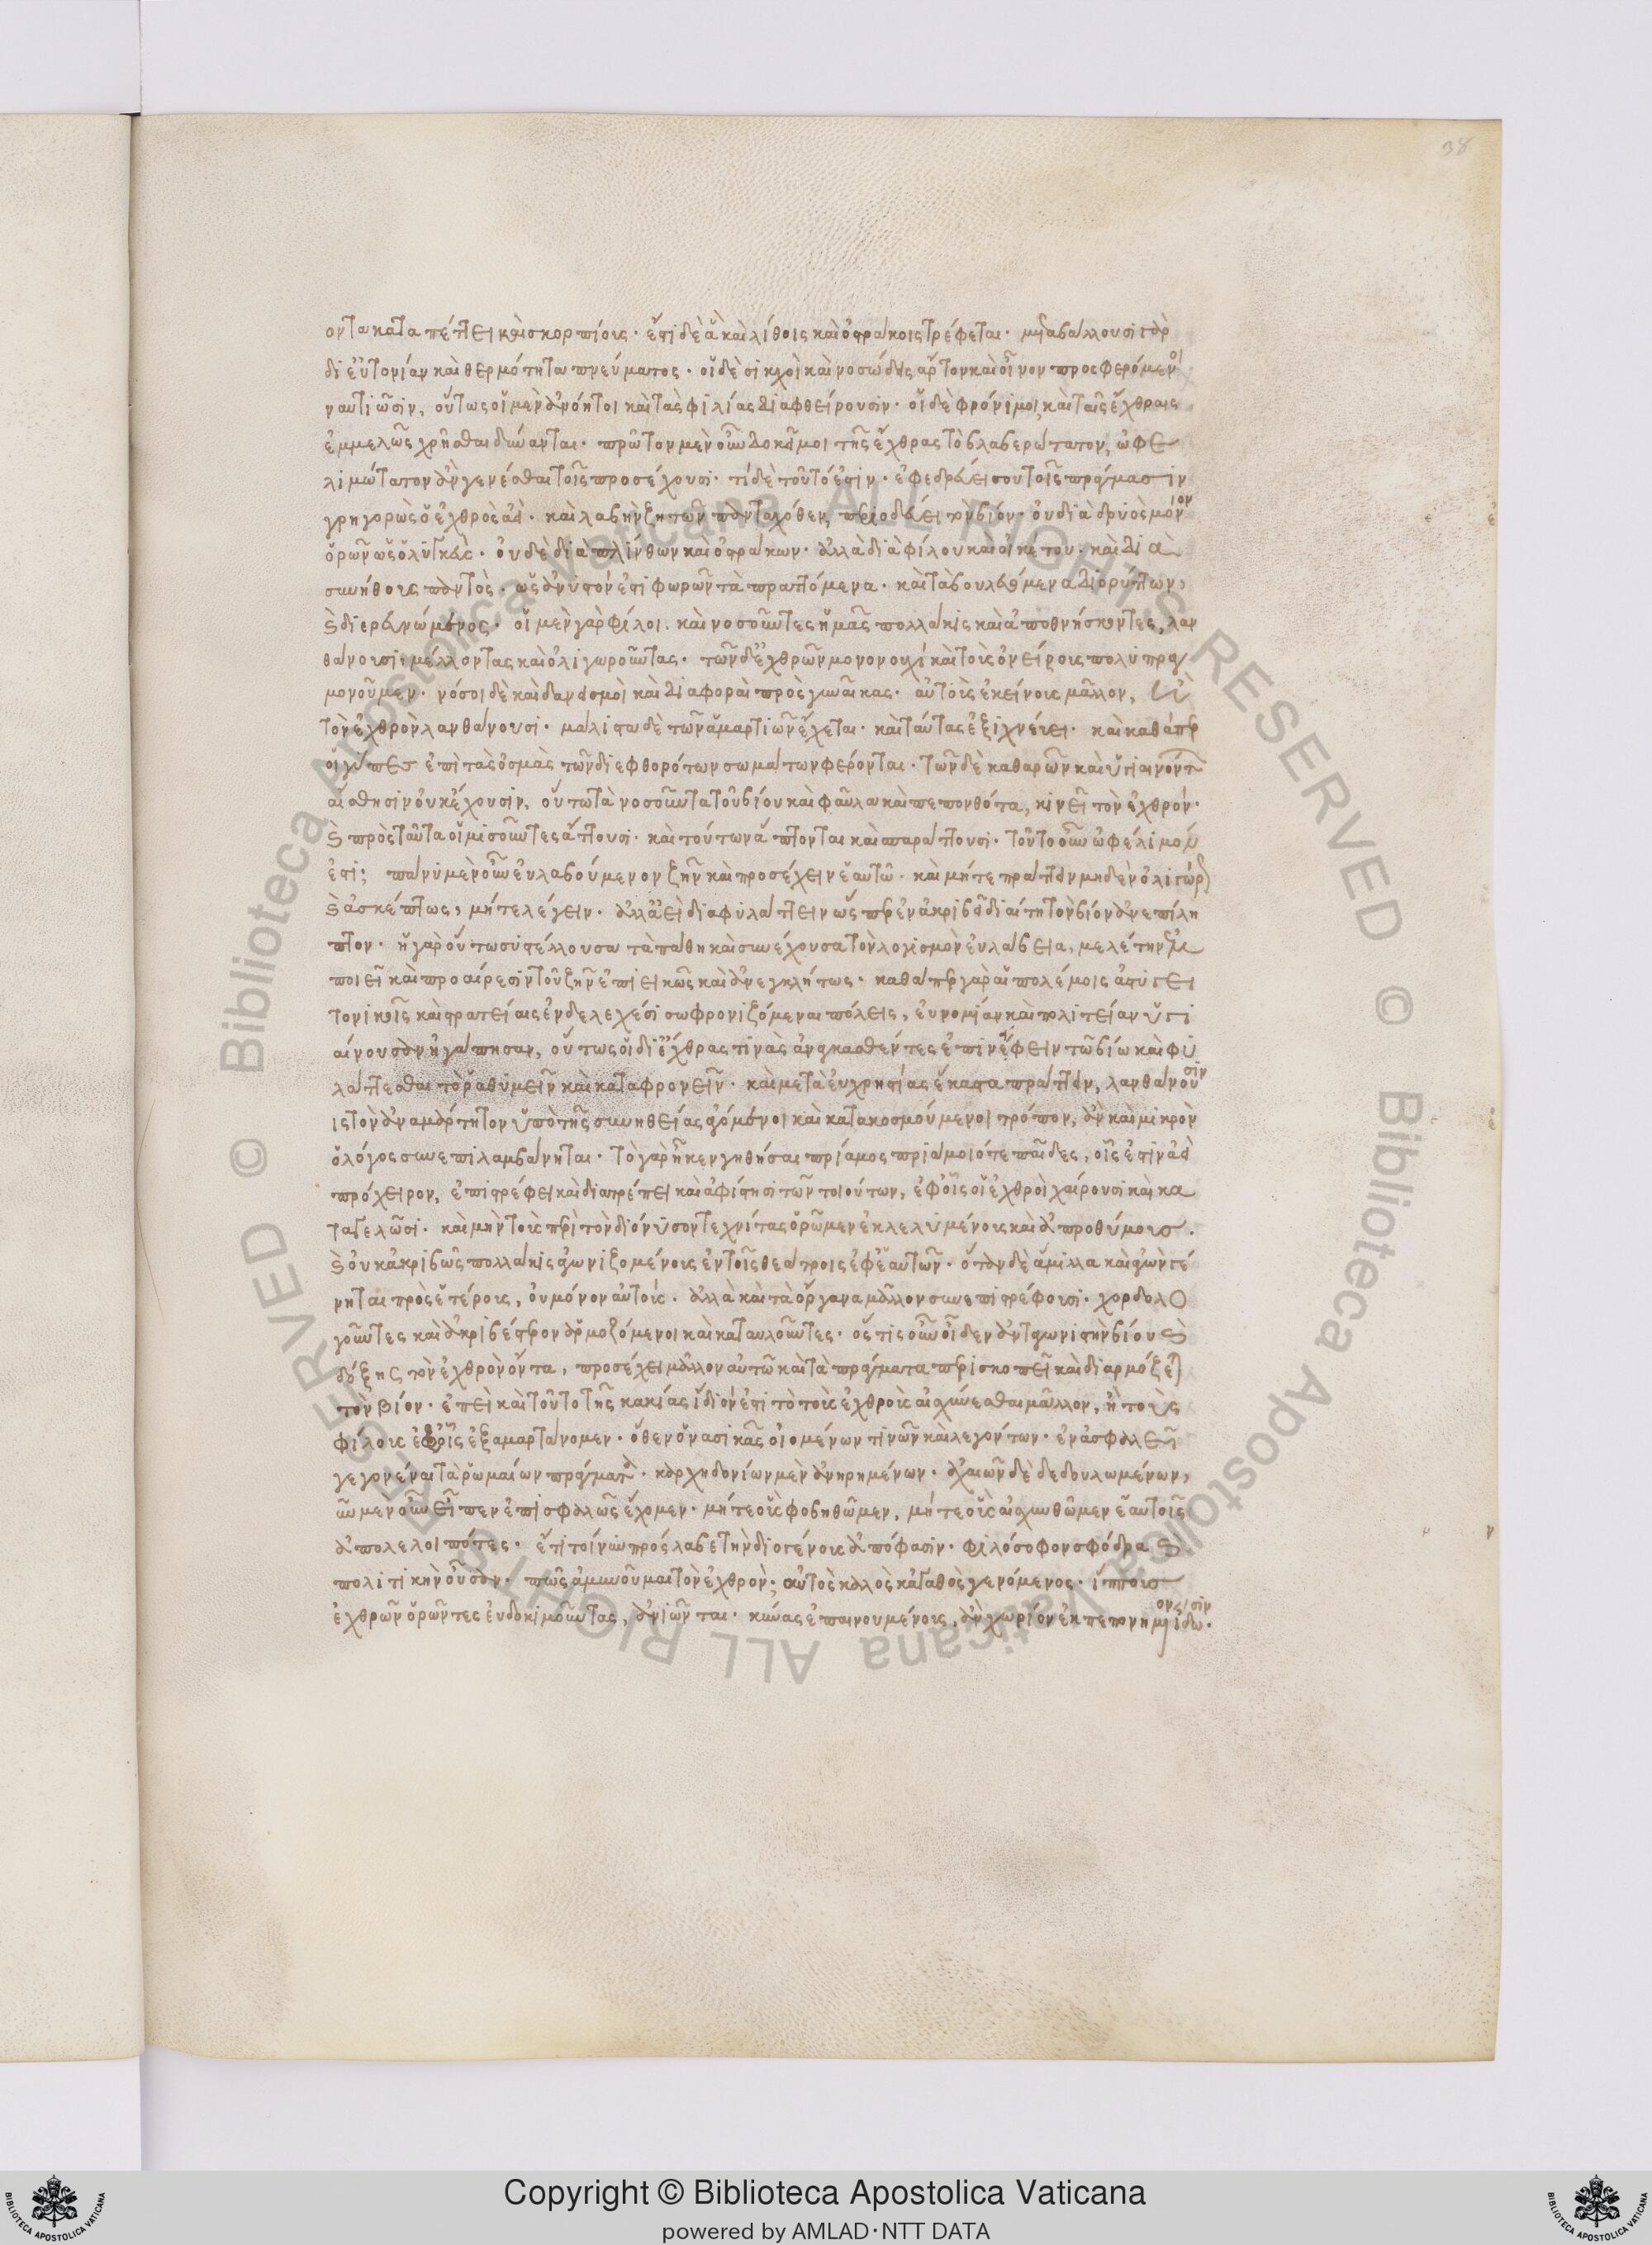 38
οντα κατα πέττει καὶ σκορπίους· ἔστι δὲ ἃ καὶ λίθοις καὶ ὀστράκοις τρέφεται· μεταβάλλουσι γὰρ
δι εὐτονίαν καὶ θερμότητα πνεύματος· οἱ δὲ σικχοὶ καὶ νοσώδεις ἄρτον καὶ οἶνον προσφερόμενοι
ναυτιῶσιν, οὕτως οἱ μὲν ἀνόητοι καὶ τὰς φιλίας διαφθείρουσιν· οἱ δὲ φρόνιμοι καὶ ταῖς ἔχθραις
ἐμμελῶς χρῆσθαι δύνανται· πρῶτον μὲν οὖν δοκεῖ μοι τῆς ἔχθρας τὸ βλαβερώτατον, ὠφε
λιμώτατον ἂν γενέσθαι τοῖς προσέχουσι· τί δὲ τοῦτό ἐστιν· ἐφεδρεύει σου τοῖς πράγμασιν
ἐγρηγορὼς ὁ ἐχθρὸς ἀεὶ· καὶ λαβὴν ζητῶν πανταχόθεν περιοδεύει τὸν βίον· οὐ διὰ δρυὸς μόνον
ὁρῶν ὡς ὁ λυγκεὺς· οὐδὲ διὰ πλίνθων καὶ ὀστράκων· ἀλλὰ διὰ φίλου καὶ οἰκέτου· καὶ διὰ
συνήθους παντὸς· ὡς ἀνυστόν ἐστι φωρῶν τὰ πραττόμενα· καὶ τὰ βουλευόμενα διορύττων,
καὶ διερευνώμενος· οἱ μὲν γὰρ φίλοι· καὶ νοσοῦντες ἡμᾶς πολλάκις καὶ ἀποθνήσκοντες, λαν
θάνουσι· μέλλοντας καὶ ὀλιγωροῦντας· τῶν δ ἐχθρῶν μονονουχί καὶ τοὺς ὀνείρους πολυπραγ
μονοῦμεν· νόσοι δὲ καὶ δανεισμοὶ καὶ διαφοραὶ πρὸς γυναῖκας· αὐτοὺς ἐκείνους μᾶλλον, ἢ
τὸν ἐχθρὸν λανθάνουσι· μάλιστα δὲ τῶν ἁμαρτιῶν ἔχεται· καὶ ταύτας ἐξιχνεύει· καὶ καθάπερ
οἱ γῦπες ἐπὶ τὰς ὀσμὰς τῶν διεφθορότων σωμάτων φέρονται· τῶν δὲ καθαρῶν καὶ ὑγιαινόντων
αἴσθησιν οὐκ ἔχουσιν, οὕτω τὰ νοσοῦντα τοῦ βίου καὶ φαῦλα καὶ πεπονθότα, κινεῖ τὸν ἐχθρόν·
καὶ πρὸς ταῦτα οἱ μισοῦντες ἅττουσι· καὶ τούτων ἅπτονται καὶ σπαράττουσι· τοῦτο οὖν ὠφέλιμον
ἐστι; πάνυ μὲν οὖν εὐλαβούμενον ζῆν καὶ προσέχειν ἑαυτῶ· καὶ μήτε πράττειν μηδὲν ὀλιγώρως
καὶ ἀσκέπτως, μήτε λέγειν· ἀλλ ἀεὶ διαφυλάττειν ὥσπερ ἐν ἀκριβεῖ διαίτη τὸν βίον ἀνεπίλη
πτον· ἡ γὰρ οὕτω συστέλλουσα τὰ πάθη καὶ συνέχουσα τὸν λογισμὸν εὐλάβεια, μελέτην ἐμ
ποιεῖ καὶ προαίρεσιν τοῦ ζῆν ἐπιεικῶς καὶ ἀνεγκλήτως· καθάπερ γὰρ αἱ πολέμοις ἀστυγει
τονικοῖς καὶ στρατείαις ἐνδελεχέσι σωφρονιζόμεναι πόλεις, εὐνομίαν καὶ πολιτείαν ὑγι
αίνουσαν ἠγάπησαν, οὕτως οἱ δι ἔχθρας τινὰς ἀναγκασθέντες ἐπινήφειν τῶ βίω καὶ φυ
λάττεσθαι τὸ ῥαθυμεῖν καὶ καταφρονεῖν· καὶ μετὰ εὐχρηστίας ἕκαστα πράττειν, λανθάνουσιν
εἰς τὸν ἀναμάρτητον ὑπὸ τῆς συνηθείας ἀγόμενοι καὶ κατακοσμούμενοι τρόπον, ἂν καὶ μικρὸν
ὁ λόγος συνεπιλαμβάνηται· τὸ γὰρ ἦ κεν γηθήσαι πρίαμος πριάμοιό τε παῖδες, οἷς ἐστὶν ἀεὶ
πρόχειρον, ἐπιστρέφει καὶ διατρέπει καὶ ἀφίστησι τῶν τοιούτων, ἐφ οἷς οἱ ἐχθροὶ χαίρουσι καὶ κα
ταγελῶσι· καὶ μὴν τοὺς περὶ τὸν διόνυσον τεχνίτας ὁρῶμεν ἐκλελυμένους καὶ ἀπροθύμους·
καὶ οὐκ ἀκριβῶς πολλάκις ἀγωνιζομένους ἐν τοῖς θεάτροις ἐφ ἑαυτῶν· ὅταν δὲ ἅμιλλα καὶ ἀγὼν γέ
νηται πρὸς ἑτέρους, οὐ μόνον αὐτοὺς· ἀλλὰ καὶ τὰ ὄργανα μᾶλλον συνεπιστρέφουσι· χορδολο
γοῦντες καὶ ἀκριβέστερον ἁρμοζόμενοι καὶ καταυλοῦντες· ὅστις οὖν οἶδεν ἀνταγωνιστὴν βίου καὶ
δόξης τὸν ἐχθρὸν ὄντα, προσέχει μᾶλλον αὑτῶ καὶ τὰ πράγματα περισκοπεῖ καὶ διαρμόζει
τὸν βίον· ἐπεὶ καὶ τοῦτο τῆς κακίας ἴδιόν ἐστι τὸ τοὺς ἐχθροὺς αἰσχύνεσθαι μᾶλλον, ἢ τοὺς
φίλους ἐφ οἷς ἐξαμαρτάνομεν· ὅθεν ὁ νασικᾶς οἰομένων τινῶν καὶ λεγόντων· ἐν ἀσφαλεῖ
γεγονέναι τὰ ῥωμαίων πράγματα· καρχηδονίων μὲν ἀνηρημένων· ἀχαιῶν δὲ δεδουλωμένων,
νῦν μὲν οὖν εἶπεν ἐπισφαλῶς ἔχομεν· μήτε οὓς φοβηθῶμεν, μήτε οὓς αἰσχυνθῶμεν ἑαυτοῖς
ἀπολελοιπότες· ἔτι τοίνυν πρόσλαβε τὴν διογένους ἀπόφασιν· φιλόσοφον σφόδρα καὶ
πολιτικὴν οὖσαν· πῶς ἀμυνοῦμαι τὸν ἐχθρὸν; αὐτὸς καλὸς κἀγαθὸς γενόμενος· ἵππους
ἐχθρῶν ὁρῶντες εὐδοκιμοῦντας, ἀνιῶνται· κύνας ἐπαινουμένους, ἂν χωρίον ἐκπεπονημένον ἴδωσιν·